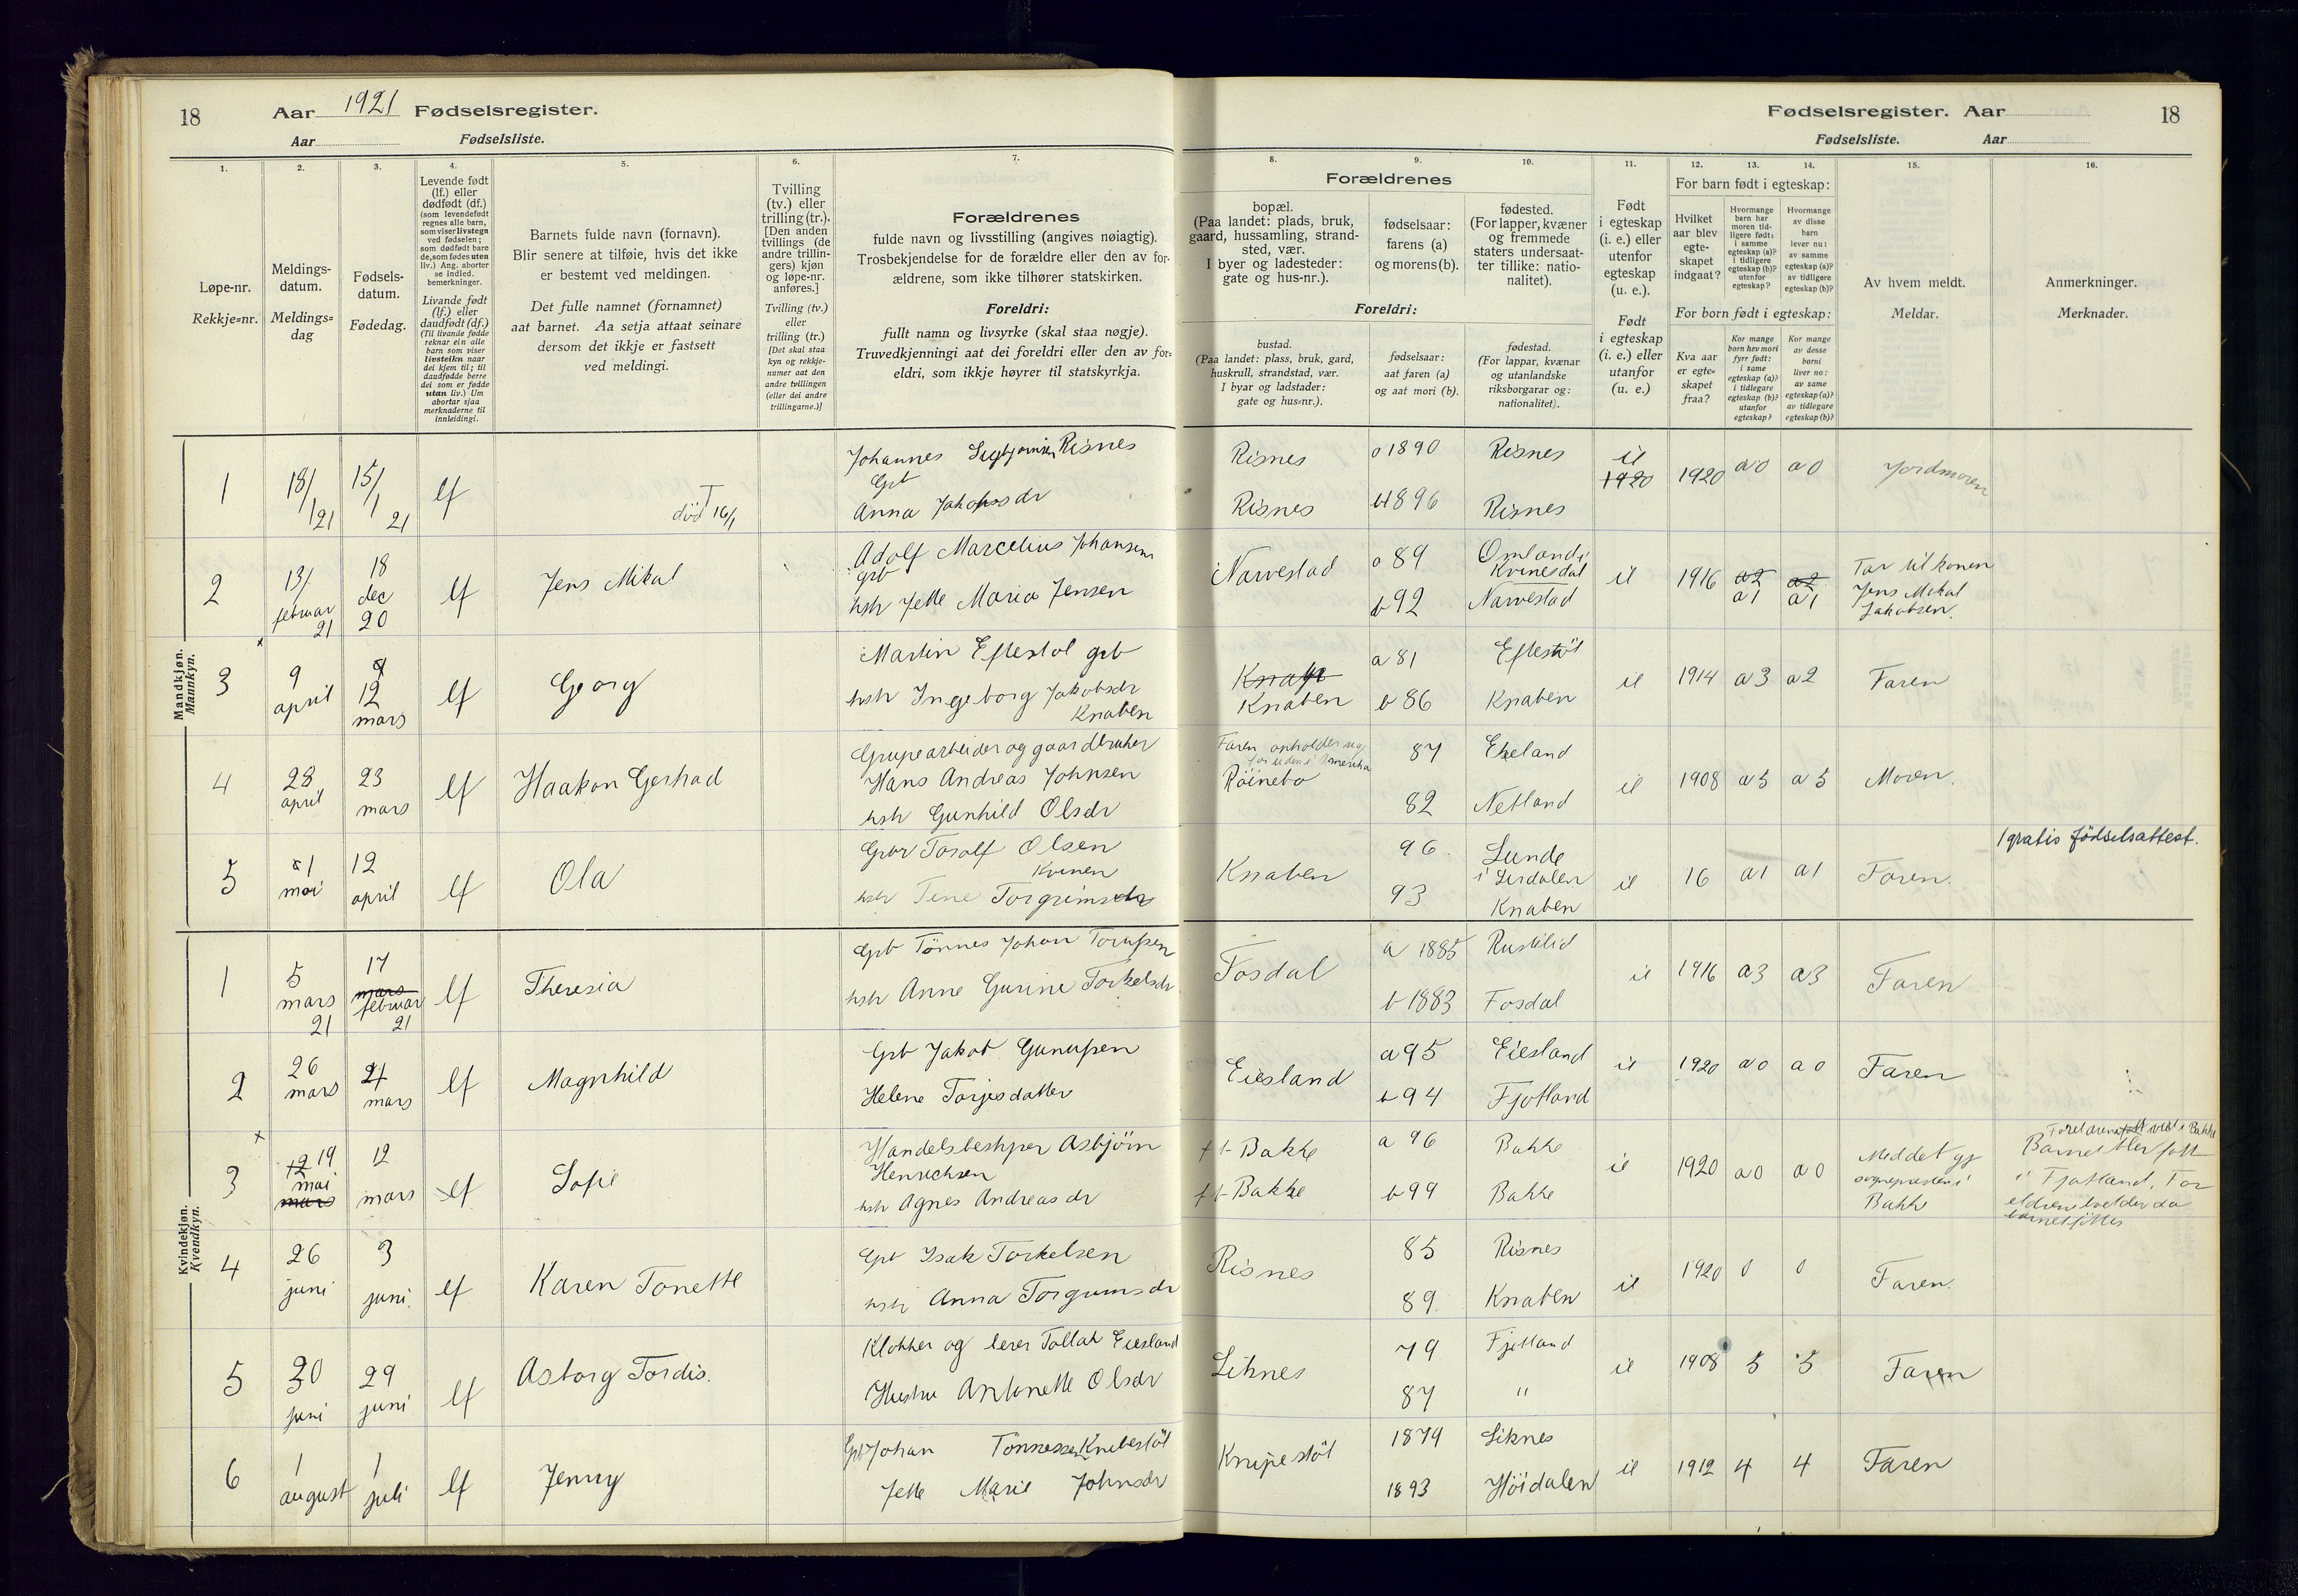 18 Aar 1921 Fødselsregister.
Aar Fødselsliste.
Fødselsregister. Aar 18
Fødselsliste. Aar
1.
Løpe-nr.
Rekkje=nr.
2.
Meldings-
datum.
Meldings=
dag
3.
Fødsels-
datum.
Fødedag.
4.
Levende født
(lf.) eller
dødfødt (df.)
(som levendefødt
regnes alle barn,
som viser livstegn
ved fødselen;
som dødfødt bare
de, som fødes uten
liv.) Ang. aborter
se indled.
bemerkninger.
Livande født
(lf.) eller
daudfødt (df.)
(Til livande fødde
reknar ein alle
barn som viser
livsteikn naar
dei kjem til; til
daudfødde berre
dei som er fødde
utan liv.) Um
abortar sjaa
merknaderne til
innleidingi.
5.
Barnets fulde navn (fornavn).
Blir senere at tilføie, hvis det ikke
er bestemt ved meldingen.
Det fulle namnet (fornamnet)
aat barnet. Aa setja attaat seinare
dersom det ikkje er fastsett
ved meldingi.
6.
Tvilling
(tv.) eller
trilling (tr.).
[Den anden
tvillings (de
andre trillin-
gers) kjøn
og løpe-nr.
anføres.]
Tvilling (tv.)
eller
trilling (tr.)
[Det skal staa
kyn og rekkje-
numer aat den
andre tvillingen
(eller dei andre
trillingarne.)]
7.
Forældrenes
fulde navn og livsstilling (angives nøiagtig).
Trosbekjendelse for de forældre eller den av for-
ældrene, som ikke tilhører statskirken.
Foreldri:
fullt namn og livsyrke (skal staa nøgje).
Truvedkjenningi aat dei foreldri eller den av for=
eldri, som ikkje høyrer til statskyrkja.
Forældrenes
8.
bopæl.
(Paa landet: plads, bruk,
gaard, hussamling, strand-
sted, vær.
I byer og ladesteder:
gate og hus-nr.).
9.
fødselsaar:
farens (a)
og morens (b).
10.
fødested.
(For lapper, kvæner
og fremmede
staters undersaat-
ter tillike: natio-
nalitet).
Foreldri:
bustad.
(Paa landet: plass, bruk, gard,
huskrull, strandstad, vær.
I byar og ladstader:
gate og hus=nr.).
fødselsaar:
aat faren (a)
og aat mori (b).
fødestad.
(For lappar, kvænar
og utanlandske
riksborgarar og:
nationalitet).
11.
Født
i egteskap
(i. e.) eller
utenfor
egteskap
(u. e.).
Født
i egteskap
(i. e.) eller
utanfor
(u. e.)
For barn født i egteskap:
12.
Hvilket
aar blev
egte-
skapet
indgaat?
13.
Hvormange
barn har
moren tid-
ligere født:
i samme
egteskap (a)?
i tidligere
egteskap (b)?
utenfor
egteskap?
14.
Hvormange
av disse
barn
lever nu:
av samme
egteskap (a)?
av tidligere
egteskap (b)?
For born født i egteskap:
Kva aar
er egte-
skapet
fraa?
Kor mange
born hev mori
fyrr født:
i same
egteskap (a)?
i tidlegare
egteskap (b)?
utanfor
egteskap?
Kor mange
av desse
borni
liver no:
av same
egteskap (a)?
av tidlegare
egteskap (b)?
15.
Av hvem meldt.
Meldar.
16.
Anmerkninger.
Merknader.
Mandkjøn.
Mannkyn.
1 18/1 21 15/1 21 lf død 16/1
Johannes Sigbjørnsen Risnes
Gb
Anna Jakobsdr
Risnes a 1890 Risnes
Risnes b 1896 Risnes
ie 1920 1920 a0 a0 Jordmoren
2 13/ februar 21 18 dec 20 lf Jens Mikal
Adolf Marcelius Johansen
grb
hstr Jette Maria Jensen
Narvestad a 89 Omland i Kvinesdal
b 92 Narvestad
ie 1916 a2 a1 a2 a1
Far til konen
Jens Mikal
Jakobsen.
3 9 april 12 mars lf Georg
Martin Eftestøl grb
hstr Ingeborg Jakobsdr
Knaben
Knaben a 81 Eftestøl
b 86 Knaben
ie 1914 a3 a2 Faren
4 28 april 23 mars lf Haakon Gerhad
Grupearbeider og gaardbruker
Hans Andreas Johnsen
hstr Gunhild Olsdr
Faren opholder sig for tiden i Amerika
Röinebo 87 Ekeland
82 Netland
ie 1908 a5 a5 Moren.
5 1 mai 12 april lf Ola
Gbr Torolf Olsen
Kvinen
hstr Tine Torgrimsdr
Knaben 96. Lunde
i Sirdalen
93 Knaben
ie 16 a1 a1 Faren.
1 gratis födselsattest.
Kvindekjøn.
Kvendkyn.
1 5 mars 21 17 mars februar 21 lf Theresia
Grb Tönnes Johan
hstr Anne Gurine Torkelsdr
Fosdal a 1885 Rustilid
b 1883 Fosdal
ie 1916 a3 a3 Faren
2 26 mars 21 mars lf Magnhild
Grb Jakob Gunussen
Helene Torjesdatter
Eiesland a 95 Eiesland
b 94 Fjotland
ie 1920 a0 a0 Faren
3 12 19 mai mars 12 mars lf Sofie
Handelsbestyrer Asbjörn
Henrichsen
hstr Agnes Andreasdr
Bakke a 96 Bakke
Bakke b 99 Bakke
ie 1920 a0 a0
Meddelt gj
sognepresten i
Bakke
Foreldrene viet i Bakke
Barnet blev født
i Fjotland, For
eldrene bodde der da
barnet föttes
4 26 juni 3 juni. lf Karen Tonette
Grb Isak Torkelsen
hstr Anna Torgrimsdr
Risnes 85 Risnes
89. Knaben
ie 1920 0 0 Faren.
5 30 juni 29 juni lf Asborg Tordis.
Klokker og lerer Tallak Eiesland
Hustru Antonette Olsdr
Liknes 79 Fjotland
87 "
ie 1908 5 5 Faren
6 1 august 1 juli lf Jenny
Grb Johan Tönnessen Knibestöl
Jette Marie Johnsdr
Knipestöl 1879 Liknes
1893 Höidalen
ie 1912 4 4 Faren